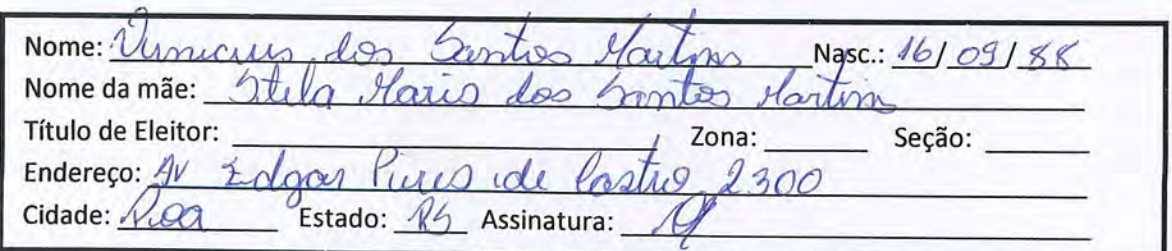 Nome: Vinicius dos Santos Martins Nasc.: 16/09/88
Nome da mãe: Stela Maris dos Santos Martins
Título de Eleitor: Zona: Seção:
Endereço: AV Edgar Pires de Castro 2300
Cidade: P.oa Estado: RS Assinatura: